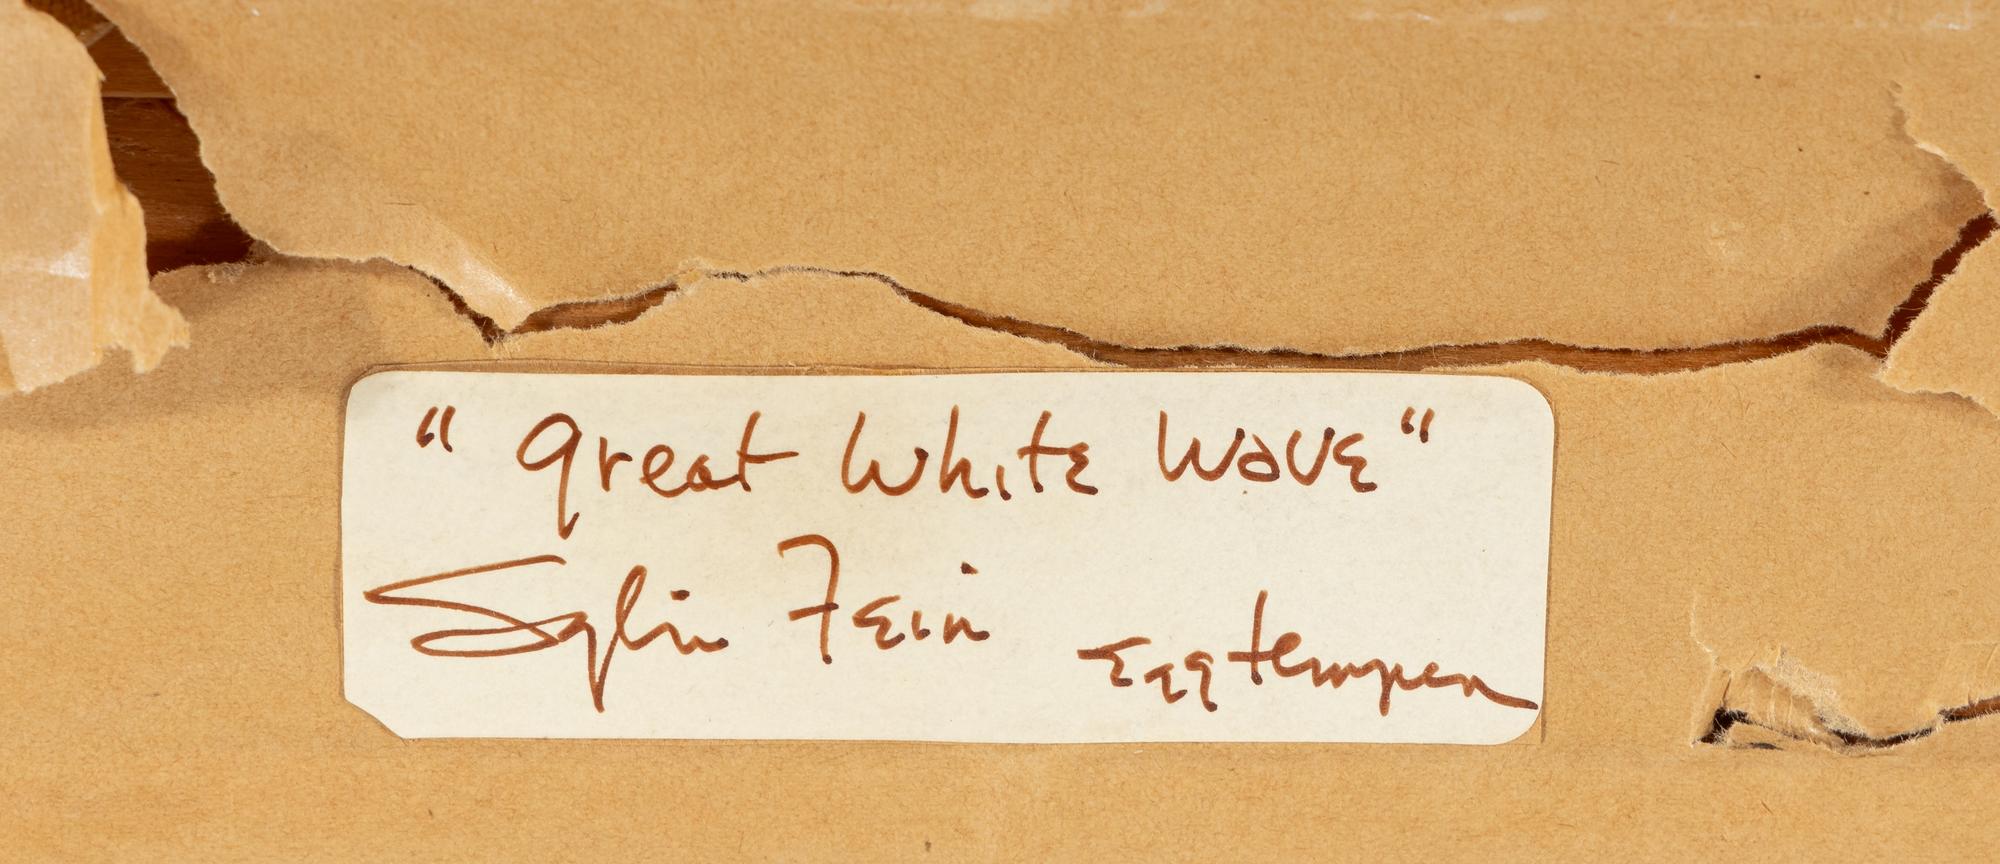 "great white wave"
Sylvia Fein
Egg tempera